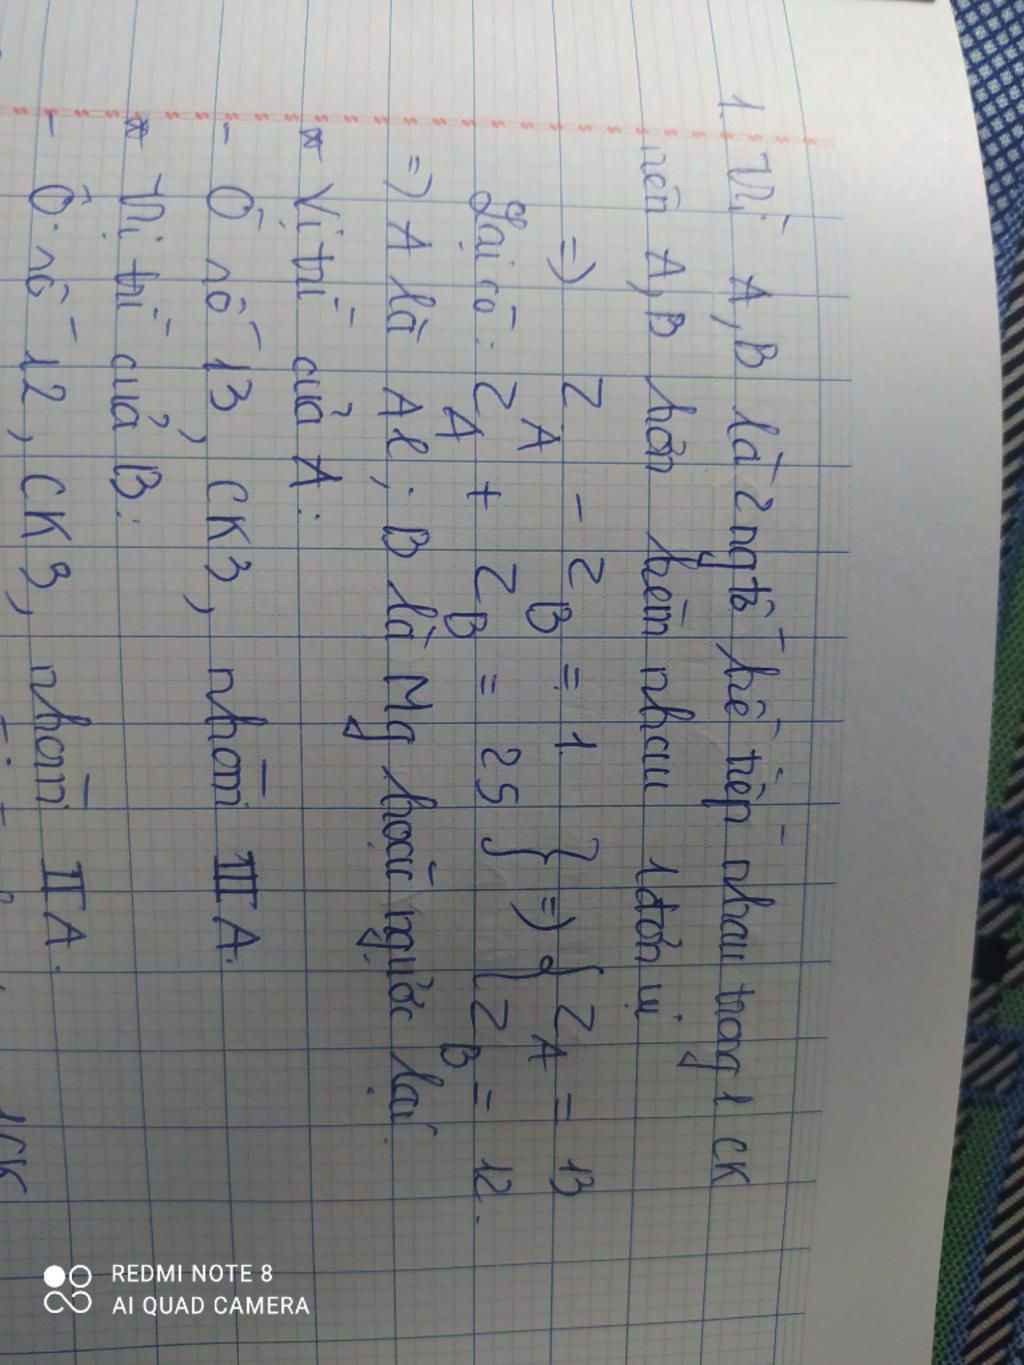 1. Vì A, B là 2 ngtố kế tiếp nhau trong 1 CK
nên A, B hơn kém nhau 1 đơn vị
=> Z_A - Z_B = 1 } => { Z_A = 13
Lại có: Z_A + Z_B = 25 } { Z_B = 12.
=) A là Al; B là Mg hoặc ngược lại.
* Vị trí của A:
- Ô số 13, CK3, nhóm III A.
* Vị trí của B:
- Ô số 12, CK3, nhóm II A.
1 CK
REDMI NOTE 8
AI QUAD CAMERA